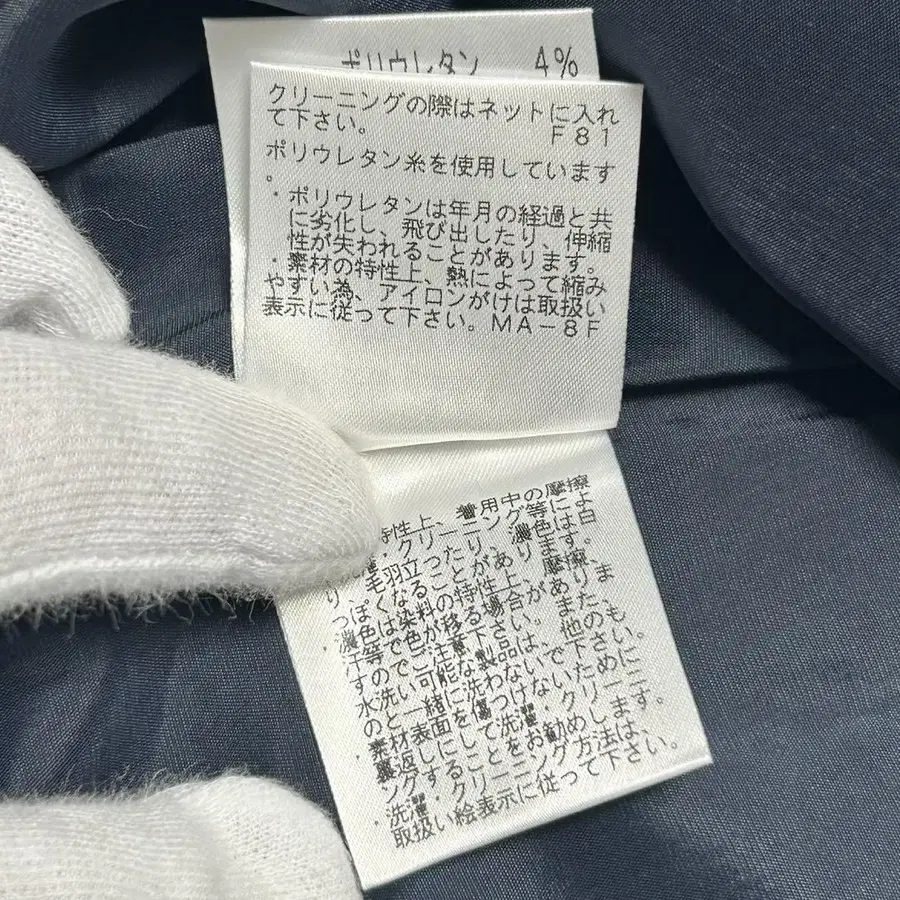 ポリウレタン 4%
クリーニングの際はネットに入れ
て下さい。 F81
ポリウレタン糸を使用しています
。
・ポリウレタンは年月の経過と共
に劣化し、飛び出したり、伸縮
性が失われることがあります。
・素材の特性上、熱によって縮み
やすい為、アイロンがけは取扱い
表示に従って下さい。MA-8F
特性上、着用中の摩擦
・クリーニング等によ
り、毛羽立ったり、濃色は白
っぽくなることがあります。
・濃色は染料の特性上、摩擦、
汗等で色が移る場合がありま
すのでご注意下さい。また、
水洗い可能な製品は、他のも
のと一緒に洗わないで下さい。
・素材表面を傷つけないために
裏返しにして洗濯・クリーニ
ングすることをお勧めします。
・洗濯・クリーニング方法は、
取扱い絵表示に従って下さい。